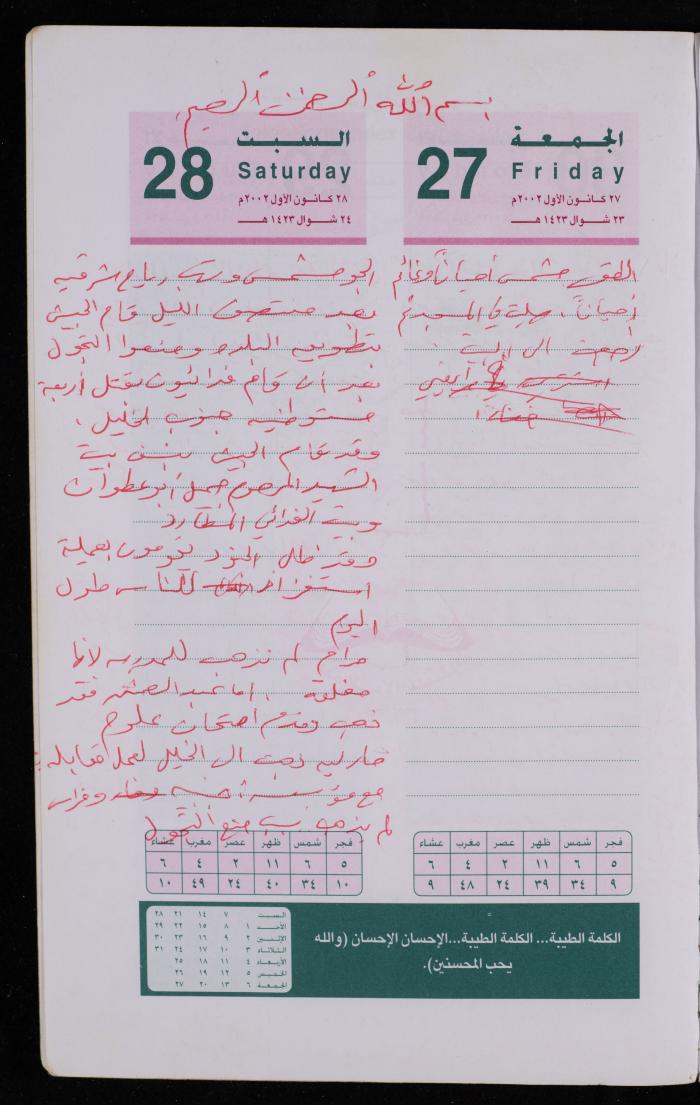 بسم الله الرحمن الرحيم
الجمعة
27
Friday
٢٧ كانون الأول ٢٠٠٢م
٢٣ شوال ١٤٢٣ هـ
الطقس مشمس أحياناً وغائم
أحياناً. صليت في المسجد ثم
رجعت الى البيت
فجر شمس ظهر عصر مغرب عشاء
٥ ٦ ١١ ٢ ٤ ٦
٩ ٣٤ ٣٩ ٢٤ ٤٨ ٩
السبت
28
Saturday
٢٨ كانون الأول ٢٠٠٢م
٢٤ شوال ١٤٢٣ هـ
الجو مشمس رياح شرقية
بعد منتصف الليل قام الجيش
بتطويق البلده ومنعوا التجول
بعد أن قام فدائيون بقتل أربعة
مستوطنيه جنوب الخليل.
وقد قام الجيش بنسف بيت
الشهيد المرحوم أبو عطوان
وبيت الفدائي المطارد
وقد ظل الجنود يقومون بعملية
استفزاز للناس طول
اليوم
مرام لم تذهب للمدرسه لانها
مغلقة. اما عبد فقد
ذهب وقدم امتحان علوم
ذهبت الى الخليل لعمل مقابله
مع مؤسسة وفراس
لم يذهب بسبب منع التجول
فجر شمس ظهر عصر مغرب عشاء
٥ ٦ ١١ ٢ ٤ ٦
١٠ ٣٤ ٤٠ ٢٤ ٤٩ ١٠
الكلمة الطيبة... الكلمة الطيبة...الإحسان الإحسان (والله
يحب المحسنين).
السبت ٧ ١٤ ٢١ ٢٨
الأحد ١ ٨ ١٥ ٢٢ ٢٩
الإثنين ٢ ٩ ١٦ ٢٣ ٣٠
الثلاثاء ٣ ١٠ ١٧ ٢٤ ٣١
الأربعاء ٤ ١١ ١٨ ٢٥
الخميس ٥ ١٢ ١٩ ٢٦
الجمعة ٦ ١٣ ٢٠ ٢٧